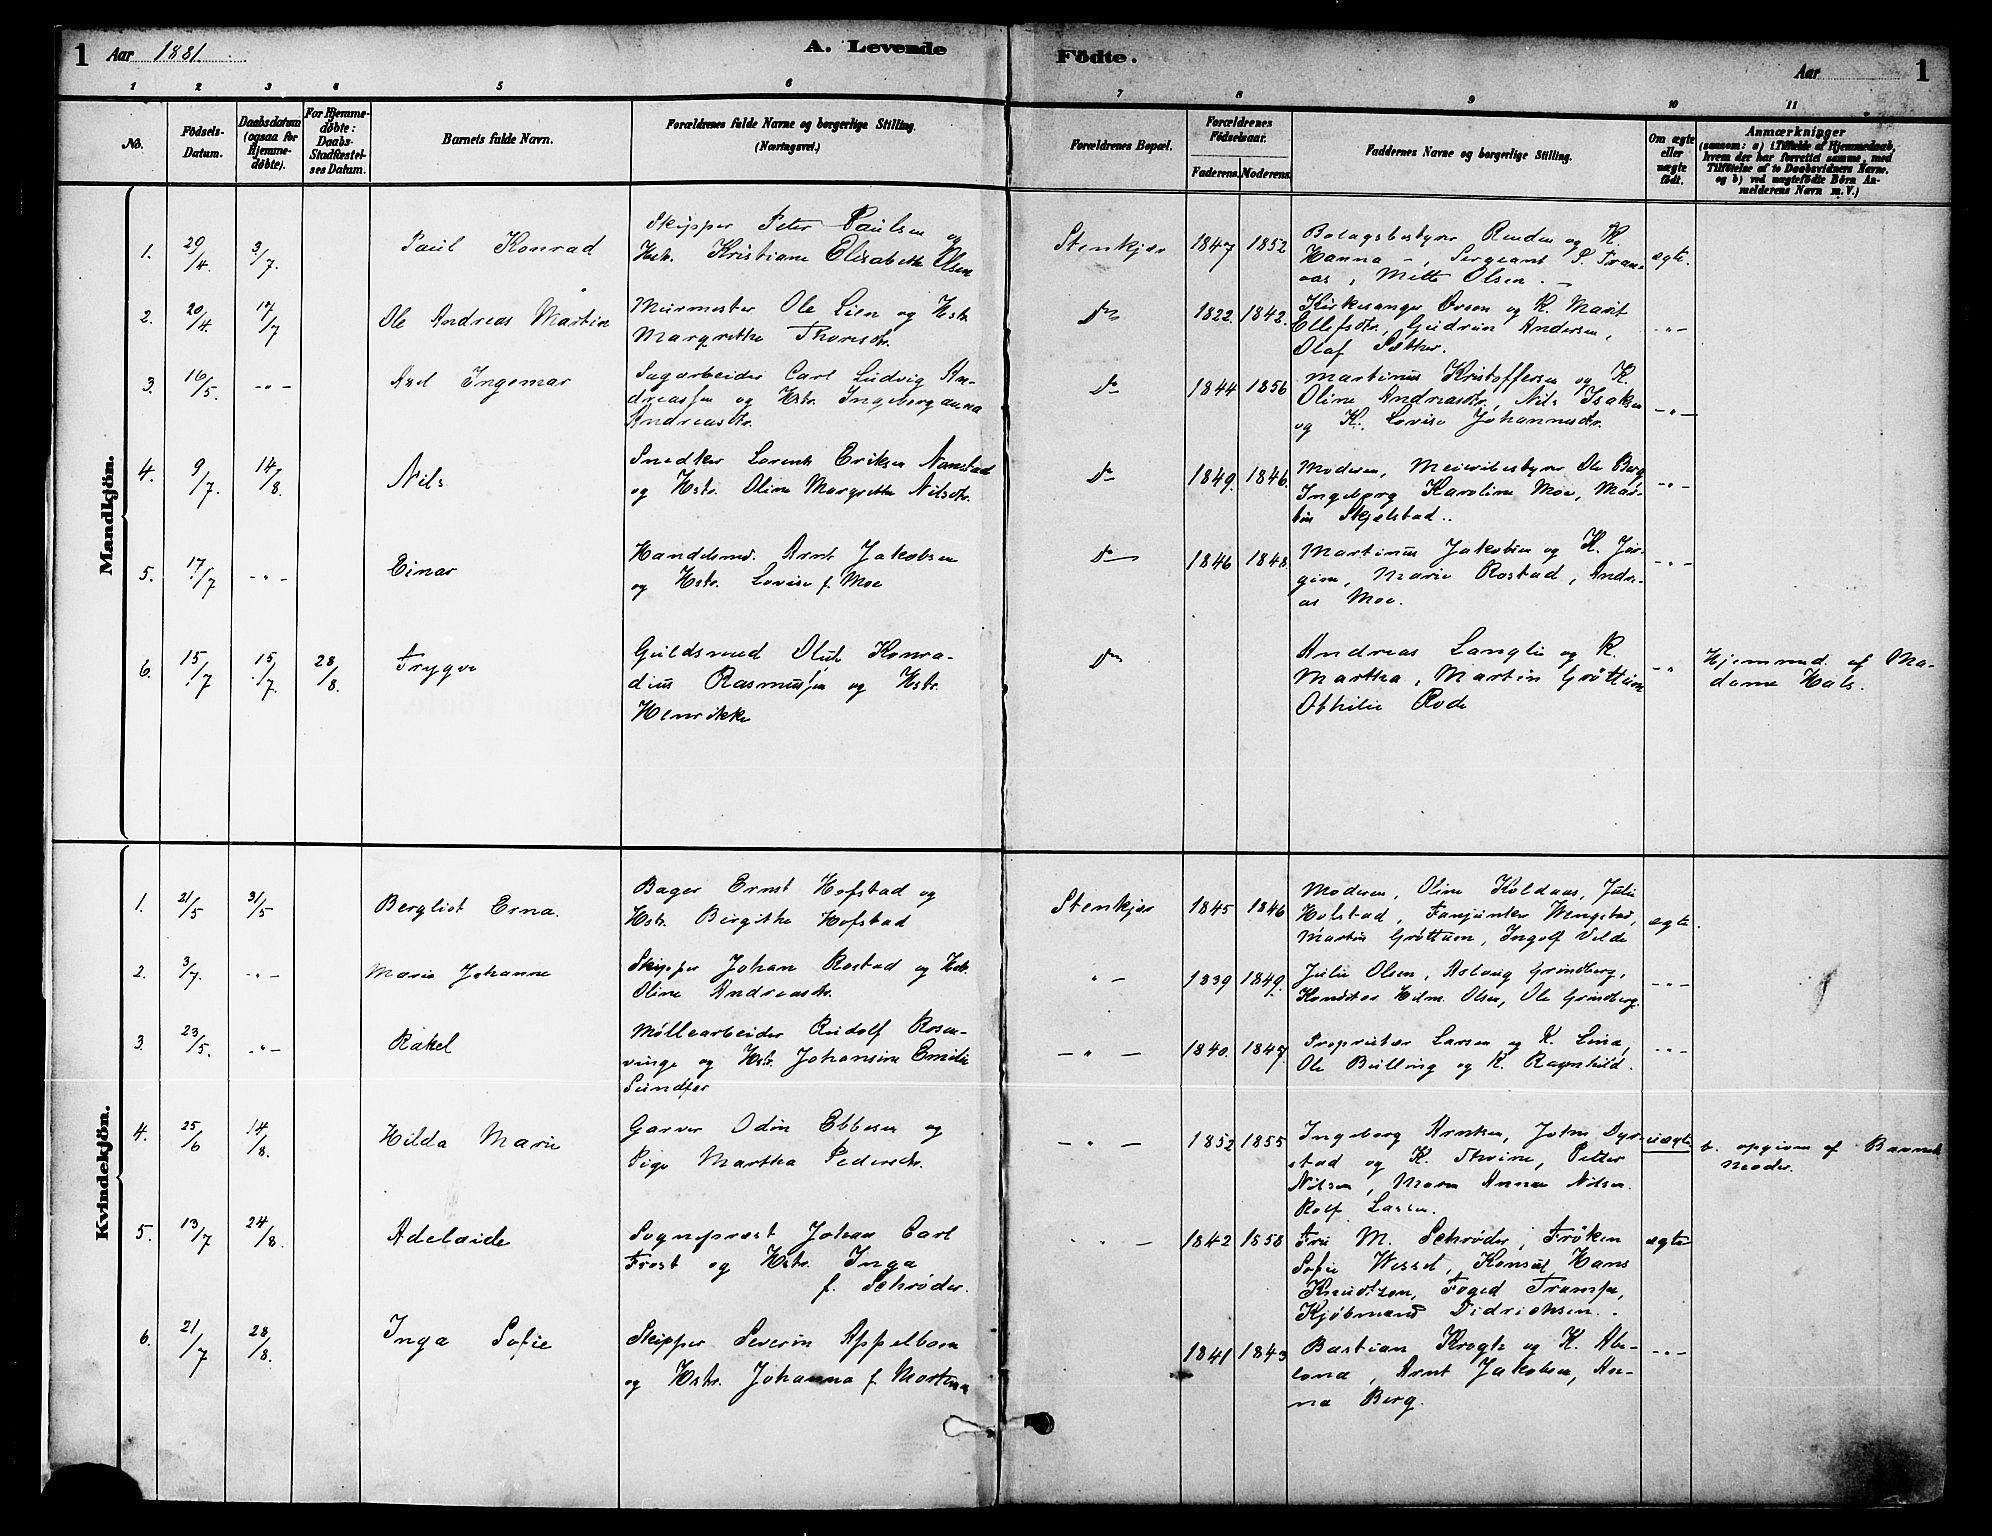 1 Aar 1881. A. Levende Födte. Aar 1
1 2 3 4 5 6 7 8 9 10 11
No.
Födsels-
Datum.
Daabsdatum
(ogsaa for
Hjemme-
døbte).
For Hjemme-
døbte:
Daabs-
Stadfæstel-
ses Datum.
Barnets fulde Navn.
Forældrenes fulde Navne og borgerlige Stilling.
(Næringsvei.)
Forældrenes Bopæl.
Forældrenes
Födselsaar.
Faderens. Moderens.
Faddernes Navne og borgerlige Stilling.
Om ægte
eller
uægte
født.
Anmærkninger
(saasom: a) i Tilfælde af Hjemmedaab,
hvem der har forrettet samme, med
Tilföielse af to Daabsvidners Navne,
og b) ved uægtefödte Börn An-
melderens Navn m. V.)
Mandkjön.
1. 29/4. 3/7. Paul Konrad
Skipper Peter Paulsen og
Hstr. Kristiane Elisabeth Olsen
Stenkjær 1847 1852
Bolagsbestyrer Renden og K.
Hanna -, Sergeant P.
Mette Olsen. -
ægte.
2. 20/4 17/7 Ole Andreas Martin
Murmester Ole Lien og Hstr.
Margrethe Thoresdtr.
Do 1822. 1842.
Kirkesanger Ovsen og K. Marit
Ellefsdtr, Gudrun Andersen,
Olaf Sæther.
-"-
3. 16/5. -"- Axel Ingemar
Sagarbeider Carl Ludvig An-
dreassen og Hstr. Ingeborganna
Andreasdtr.
Do 1844 1856
Martinus Kristoffersen og K.
Oline Andreasdtr, Nils Isaksen
og K. Lovise Johannesdtr.
-"-
4. 9/7. 14/8. Nils
Snedker Lorents Eriksen
og Hstr. Oline Margrethe Nilsdtr.
Do 1849. 1846.
Moderen, Meieribestyrer Ole Berg
Ingeborg Karoline Moe, Mar-
tin Skjelstad..
-"-
5. 17/7 -"- Einar
Handelsmd. Arnt Jakobsen
og Hstr. Lovise f. Moe
Do 1846 1848
Martinus Jakobsen og K. Jør-
gine, Marie Rostad, Andre-
as Moe.
-"-
6. 15/7 15/7. 28/8. Trygve
Guldsmed Oluf Konra-
dius Rasmussen og Hstr.
Henrikke
Do
Andreas Langlie og K.
Martha, Martin Grøttum
Othilie Rode
-"-
Hjemmed. af Ma-
dame Hals.
Kvindekjön.
1. 21/5 31/5 Bergliot Erna.
Bager Ernst Hofstad og
Hstr. Birgithe Hofstad
Stenkjær 1845 1846
Moderen, Oline Koldaas, Julie
Holstad, Fanjunker Wengstad,
Martin Grøttum, Ingolf Velde
ægte.
2. 3/7. -"- Marie Johanne
Skipper Johan Rostad og Hstr.
Oline Andreasdtr.
" - 1839 1849.
Julie Olsen, Aslaug Grindberg,
Hilm. Olsen, Ole Grindberg.
-"-
3. 23/5. -"- Rakel
Møllearbeider Rudolf Rosen-
vinge og Hstr. Johansine Emilie
Sundfær
-"- 1840. 1847.
Proprietær Larsen og K. Lina,
Ole Bülling og K. Ragnhild.
-"-
4. 25/6 14/8. Hilda Marie
Garver Odin Ebbesen og
Pige Martha Pedersdtr.
-"- 1852 1855
Ingeborg Arntsen, John Dyr-
stad og K. Thrine, Petter
Nilsen, Maren Anna Nilsen.
Rolf Lassen.
uægte
b. opgiven af Barnets
Moder.
5. 13/7 24/8. Adelaide
Sognepræst Johan Carl
Frost og Hstr. Inga
f. Schrøder.
" - 1842 1858
Fru M. Schrøder, Frøken
Sofie Wessel, Konsul Hans
Knudtzon, Foged Trampe,
Kjøbmand Didrichsen.
ægte
6. 21/7 28/8. Inga Sofie
Skipper Severin Appelbom
og Hstr. Johanna f. Mortensen
1841 1843
Bastian Krogh og K. Abe-
lona, Arnt Jakobsen, An-
na Berg.
-"-